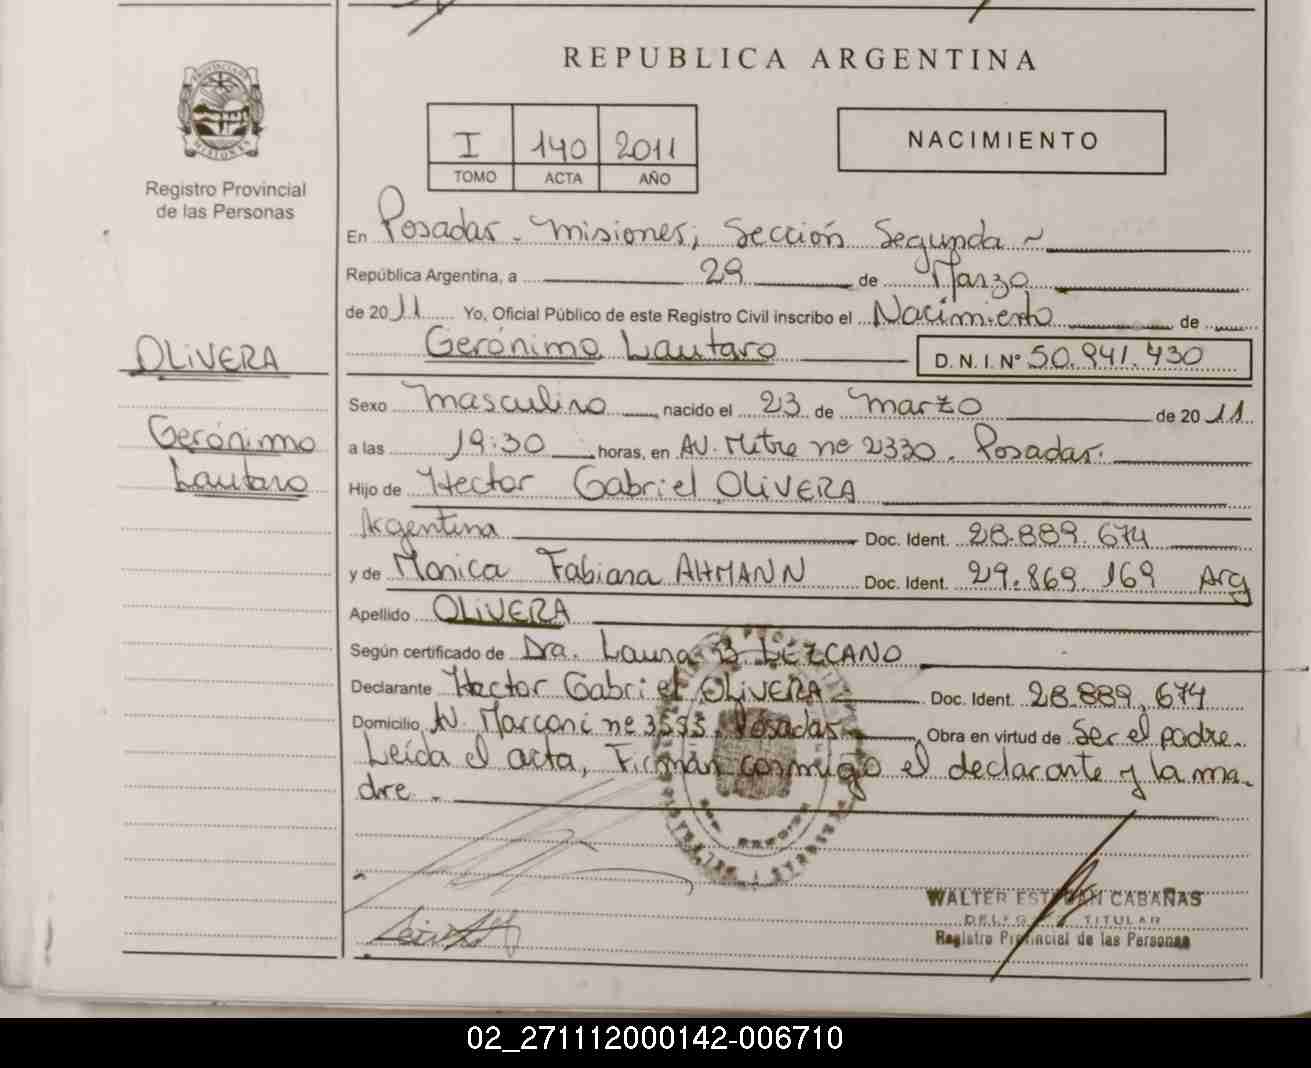 REPUBLICA ARGENTINA
I 140 2011
TOMO ACTA AÑO
NACIMIENTO
Registro Provincial
de las Personas
En Posadas - Misiones, Sección Segunda ~
República Argentina, a 29 de Marzo
de 2011 Yo, Oficial Público de este Registro Civil inscribo el Nacimiento de
Gerónimo Lautaro D. N. I. Nº 50.941.430
OLIVERA
Gerónimo
Lautaro
Sexo Masculino nacido el 23 de Marzo de 2011
a las 19:30 horas, en AV. Mitre nº 2330. Posadas.
Hijo de Hector Gabriel OLIVERA
Argentina Doc. Ident. 28.889.674
y de Monica Fabiana AHMANN Doc. Ident. 29.869.169 Arg
Apellido OLIVERA
Según certificado de Dra. Laura B LEZCANO
Declarante Hector Gabriel OLIVERA Doc. Ident. 28.889.674
Domicilio AV. Marconi nº 3593, Posadas Obra en virtud de Ser el padre.
Leída el acta, Firman conmigo el declarante y la ma-
dre.
WALTER ESTEBAN CABAÑAS
DELEGADO TITULAR
Registro Provincial de las Personas
02_271112000142-006710